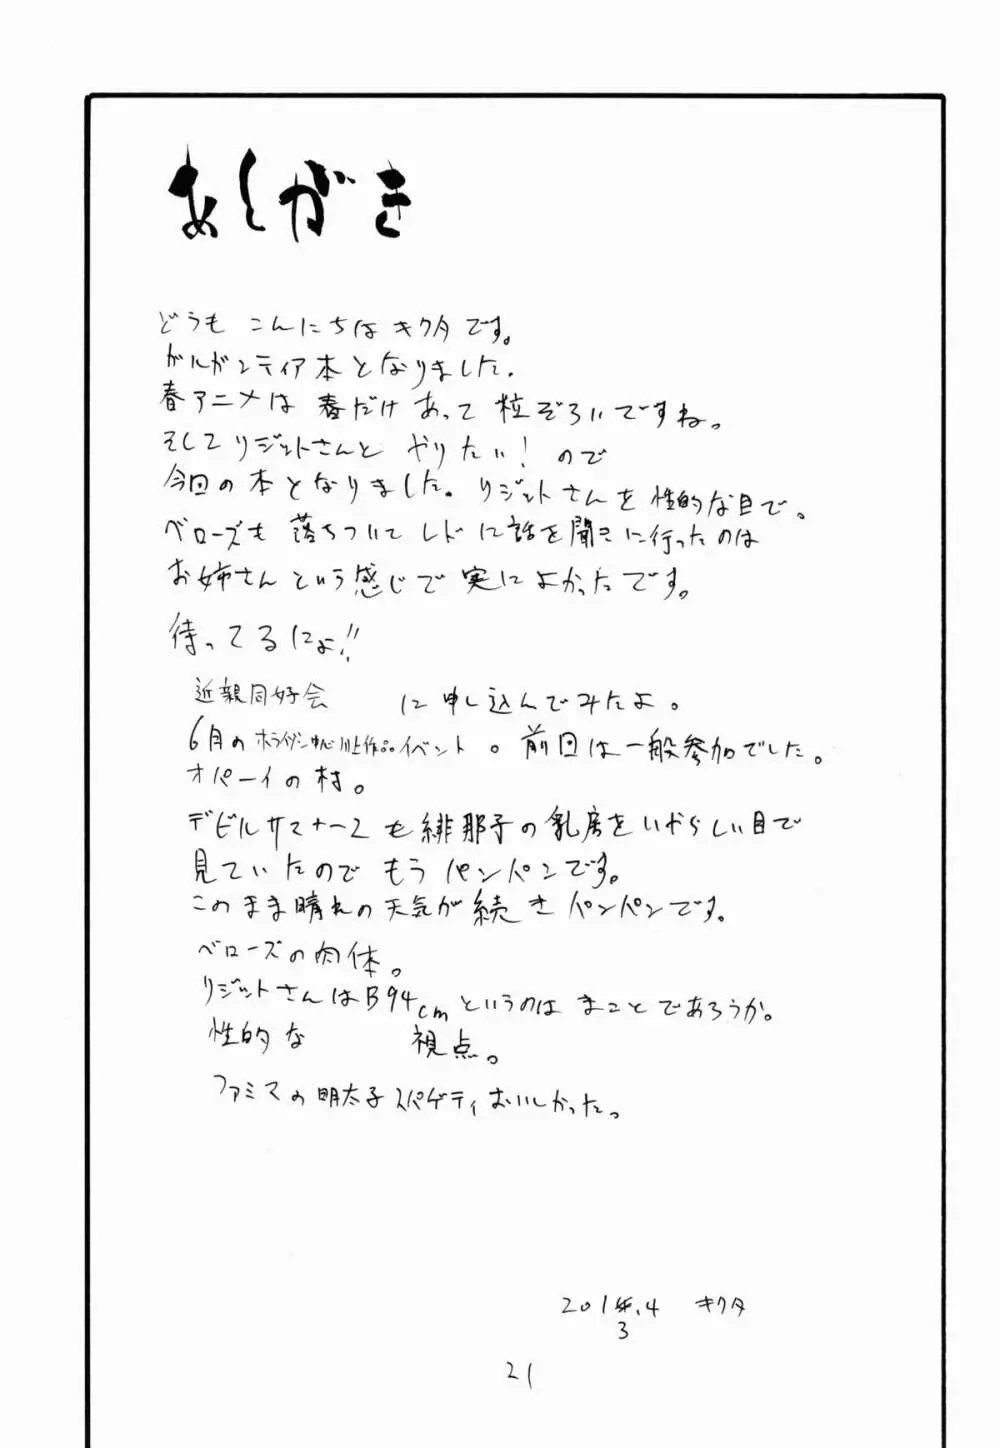 あとがき
どうも こんにちは キクタです。
ガルガンティア本となりました。
春アニメは 春だけあって 粒ぞろいですね。
そしてリジットさんと やりたい!ので
今回の本となりました。リジットさんを性的な目で。
ベローズも 落ちついてレドに話を聞きに行ったのは
お姉さんという感じで 実によかったです。
待ってるにょ!!
近親同好会 に申し込んでみたよ。
6月のホライゾン中心川上作品イベント。前回は一般参加でした。
オパーイの村。
デビルサマナー2も緋那子の乳房をいやらしい目で
見ていたので もうパンパンです。
このまま晴れの天気が続きパンパンです。
ベローズの肉体。
リジットさんはB94cmというのは まことであろうか。
性的な 視点。
ファミマの明太子スパゲティおいしかった。
201年.4 キクタ
3
21